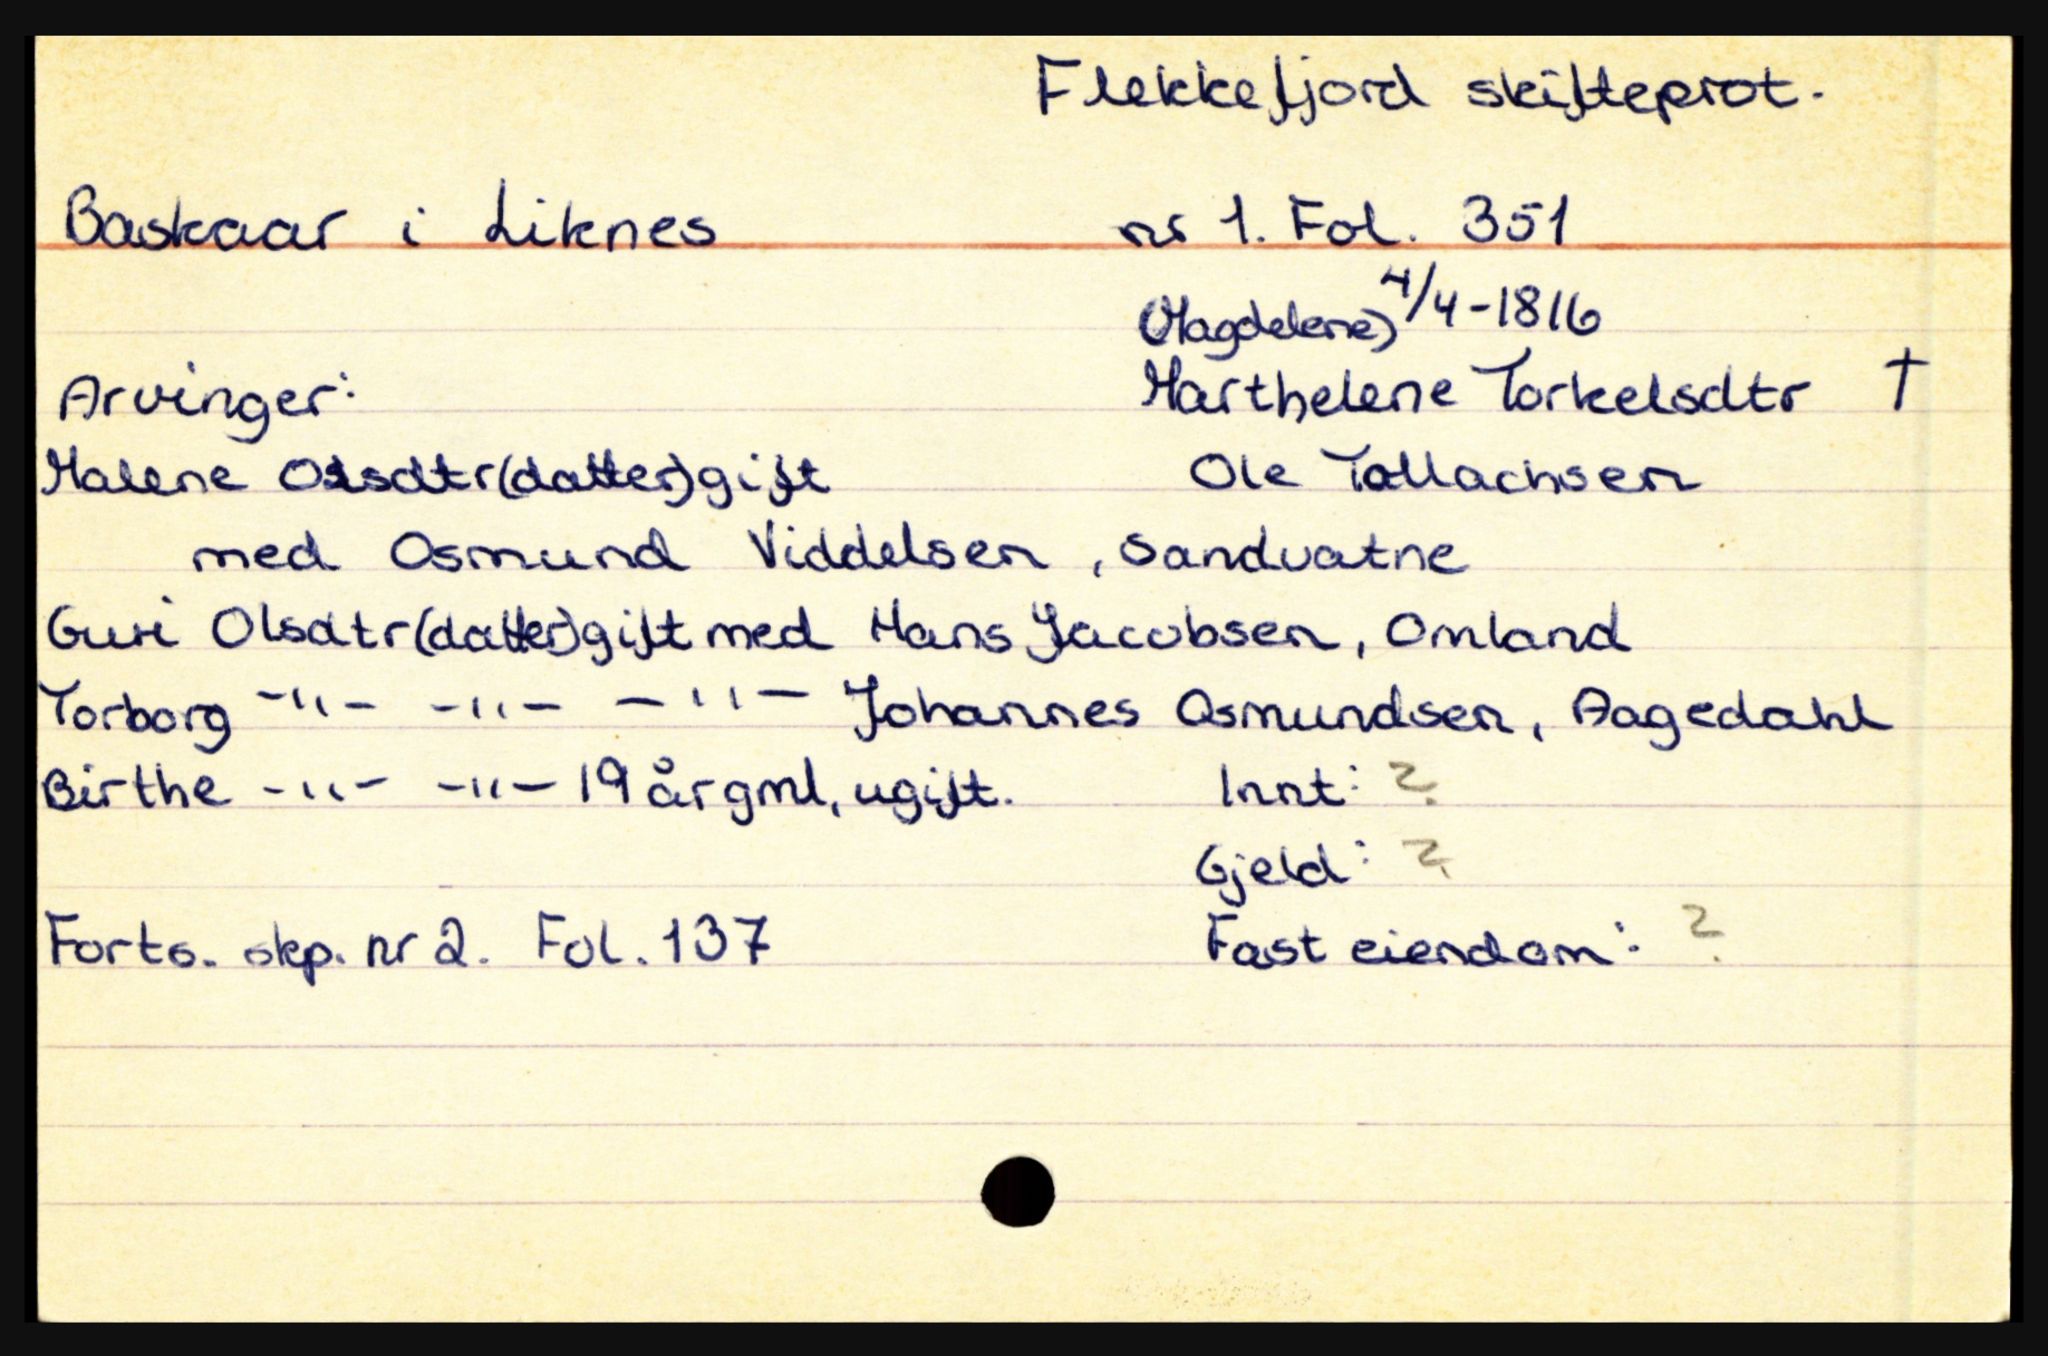 Flekkefjord skifteprot.
Baskaar i Liknes nr 1. Fol. 351
(Magdelene) 4/4-1816
Arvinger: Marthelene Torkelsdtr †
Malene Olsdtr (datter) gift Ole Tollachsen
med Osmund Viddelsen, Sandvatne
Guri Olsdtr (datter) gift med Hans Jacobsen, Omland
Torborg -"- -"- -"- Johannes Osmundsen, Aagedahl
Birthe -"- -"- 19 år gml, ugift. Innt: ?
Gjeld: ?
Forts. skp. nr 2. Fol. 137 Fast eiendom: ?